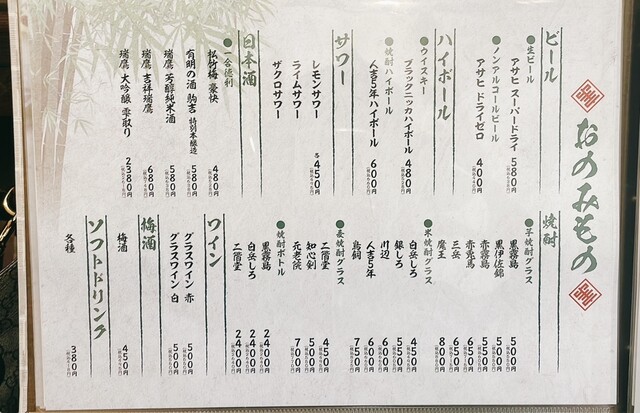 おのみもの
ビール
●生ビール
アサヒ スーパードライ 580円
●ノンアルコールビール
アサヒ ドライゼロ 400円
ハイボール
●ウイスキー
ブラックニッカハイボール 480円
●焼酎ハイボール
人吉5年ハイボール 600円
サワー
レモンサワー
ライムサワー 各450円
ザクロサワー
日本酒
●一合徳利
松竹梅 豪快 480円
有明の酒 駒吉 特別本醸造 580円
瑞鷹 芳醇純米酒 580円
瑞鷹 吉祥瑞鷹 680円
瑞鷹 大吟醸 雫取り 2380円
焼酎
●芋焼酎グラス
黒霧島 500円
黒伊佐錦 500円
赤霧島 550円
赤兎馬 650円
三岳 650円
魔王 800円
●米焼酎グラス
白岳しろ 450円
銀しろ 550円
川辺 600円
人吉5年 600円
鳥飼 750円
●麦焼酎グラス
二階堂 450円
知心剣 500円
元老院 700円
●焼酎ボトル
黒霧島 2400円
白岳しろ 2400円
二階堂 2400円
ワイン
グラスワイン 赤 500円
グラスワイン 白 500円
梅酒
梅酒 450円
ソフトドリンク
各種 380円